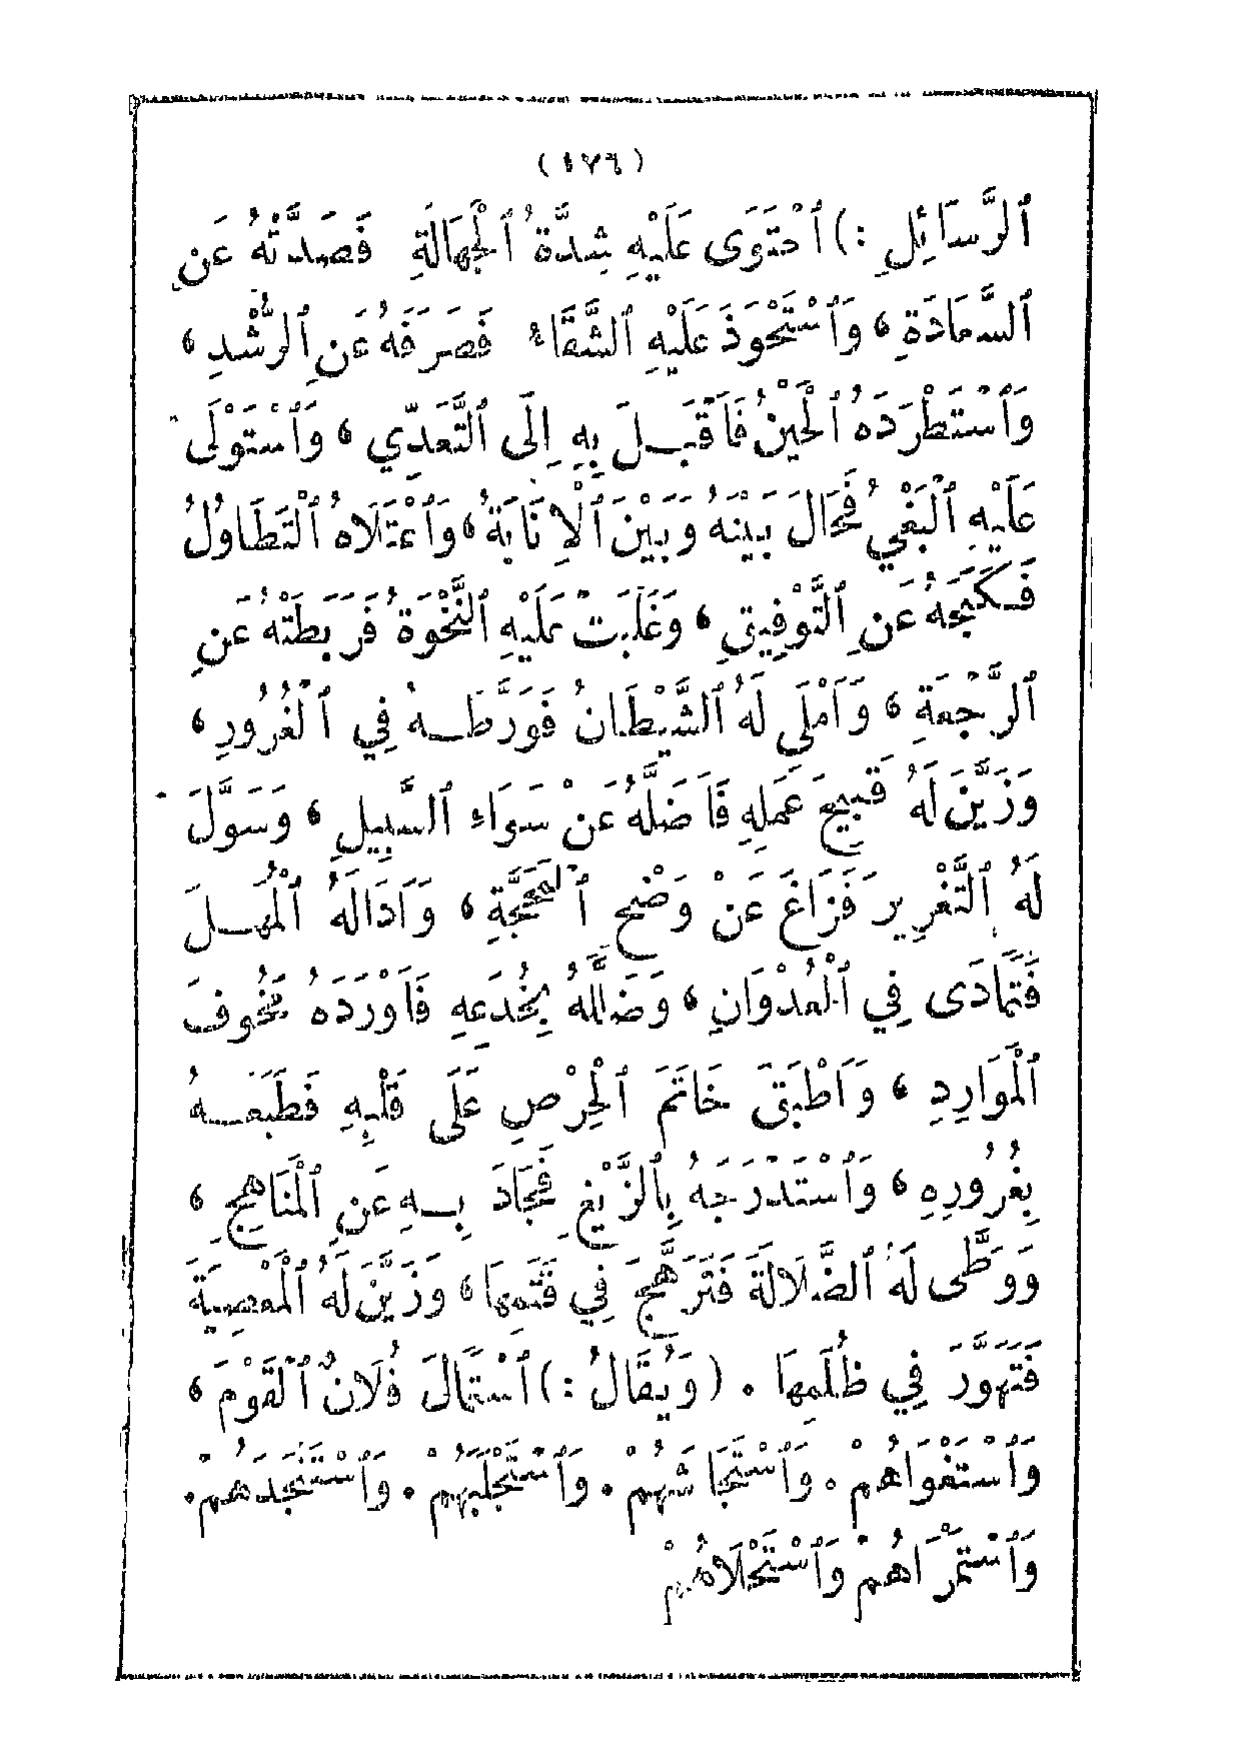 (١٧٦)
ٱلرَّسَائِلِ :) ٱحْتَوَى عَلَيْهِ شِدَّةُ ٱلْجَهَالَةِ فَصَدَّتْهُ عَنِ
ٱلسَّعَادَةِ ، وَٱسْتَحْوَذَ عَلَيْهِ ٱلشَّقَاءُ فَصَرَفَهُ عَنِ ٱلرُّشْدِ ،
وَٱسْتَطْرَدَهُ ٱلْحَيْنُ فَأَقْبَـلَ بِهِ إِلَى ٱلتَّعَدِّي ، وَٱسْتَوْلَى
عَلَيْهِ ٱلْبَغْيُ فَحَالَ بَيْنَهُ وَبَيْنَ ٱلْإِنَابَةِ ، وَٱعْتَلَاهُ ٱلتَّطَاوُلُ
فَـكَبَحَهُ عَنِ ٱلتَّوْفِيقِ ، وَغَلَبَتْ عَلَيْهِ ٱلنَّخْوَةُ فَرَبَطَتْهُ عَنِ
ٱلرَّجْعَةِ ، وَأَمْلَى لَهُ ٱلشَّيْطَانُ فَوَرَّطَـهُ فِي ٱلْغُرُورِ ،
وَزَيَّنَ لَهُ قَبِيحَ عَمَلِهِ فَأَضَلَّهُ عَنْ سَوَاءِ ٱلسَّبِيلِ ، وَسَوَّلَ
لَهُ ٱلتَّغْرِيرَ فَزَاغَ عَنْ وَضْحِ ٱلْمَحَجَّةِ ، وَأَدَالَهُ ٱلْمُهَـلَ
فَتَمَادَى فِي ٱلْعُدْوَانِ ، وَضَلَّلَهُ بِخُدَعِهِ فَأَوْرَدَهُ مَخُوفَ
ٱلْمَوَارِدِ ، وَأَطْبَقَ خَاتَمَ ٱلْحِرْصِ عَلَى قَلْبِهِ فَطَبَعَـهُ
بِغُرُورِهِ ، وَٱسْتَدْرَجَهُ بِٱلزَّيْغِ فَحَادَ بِـهِ عَنِ ٱلْمَنَاهِجِ ،
وَوَطَّى لَهُ ٱلضَّلَالَةَ فَتَرَهَّجَ فِي قَتَمِهَا ، وَزَيَّنَ لَهُ ٱلْمَعْصِيَةَ
فَتَهَوَّرَ فِي ظُلَمِهَا . (وَيُقَالُ :) ٱسْتَمَالَ فُلَانٌ ٱلْقَوْمَ ،
وَٱسْتَغْوَاهُمْ . وَٱسْتَجَاشَهُمْ . وَٱسْتَجْلَبَهُمْ . وَٱسْتَنْجَدَهُمْ .
وَٱسْتَمْرَأَهُمْ وَٱسْتَحْلَاهُمْ